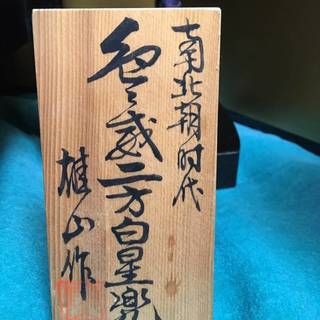 南北朝時代
色々威二方白星兜
雄山作